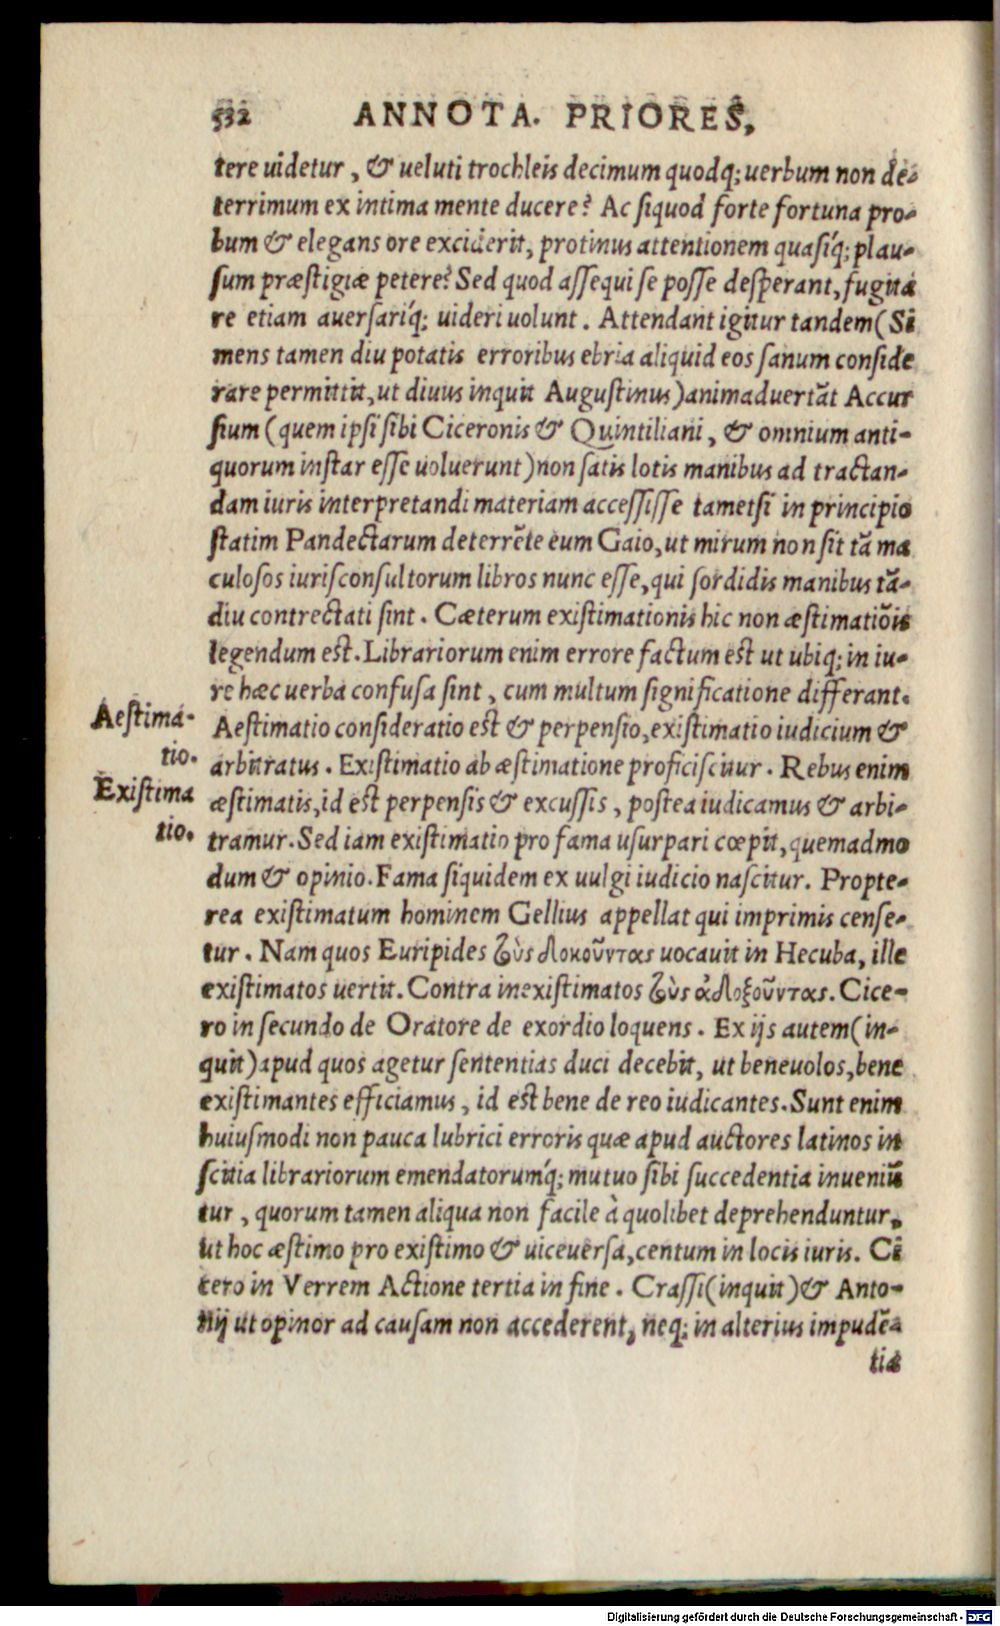 532 ANNOTA. PRIORES,
tere uidetur, & ueluti trochleis decimum quodq; uerbum non de-
terrimum ex intima mente ducere? Ac siquod forte fortuna pro-
bum & elegans ore exciderit, protinus attentionem quasíq; plau-
sum præstigiæ petere? Sed quod assequi se posse desperant, fugita
re etiam auersaríq; uideri uolunt. Attendant igitur tandem (Si
mens tamen diu potatis erroribus ebria aliquid eos sanum conside
rare permittit, ut diuus inquit Augustinus) animaduertāt Accur
sium (quem ipsi sibi Ciceronis & Quintiliani, & omnium anti-
quorum instar esse uoluerunt) non satis lotis manibus ad tractan-
dam iuris interpretandi materiam accessisse tametsi in principio
statim Pandectarum deterrēte eum Gaio, ut mirum non sit tā ma
culosos iurisconsultorum libros nunc esse, qui sordidis manibus tā-
diu contrectati sint. Cæterum existimationis hic non æstimatiōis
legendum est. Librariorum enim errore factum est ut ubiq; in iu-
re hæc uerba confusa sint, cum multum significatione differant.
Aestima-
tio.
Aestimatio consideratio est & perpensio, existimatio iudicium &
arbitratus. Existimatio ab æstimatione proficiscitur. Rebus enim
Existima
tio.
æstimatis, id est perpensis & excussis, postea iudicamus & arbi-
tramur. Sed iam existimatio pro fama usurpari cœpit, quemadmo
dum & opinio. Fama siquidem ex uulgi iudicio nascitur. Propte-
rea existimatum hominem Gellius appellat qui imprimis cense-
tur. Nam quos Euripides τοὺς δοκοῦντας uocauit in Hecuba, ille
existimatos uertit. Contra inexistimatos τοὺς ἀδοξοῦντας. Cice-
ro in secundo de Oratore de exordio loquens. Ex ijs autem (in-
quit) apud quos agetur sententias duci decebit, ut beneuolos, bene
existimantes efficiamus, id est bene de reo iudicantes. Sunt enim
huiusmodi non pauca lubrici erroris quæ apud auctores latinos in
scitia librariorum emendatorumq́; mutuo sibi succedentia inueniū
tur, quorum tamen aliqua non facile à quolibet deprehenduntur,
ut hoc æstimo pro existimo & uiceuersa, centum in locis iuris. Ci
cero in Verrem Actione tertia in fine. Crassi (inquit) & Anto-
nij ut opinor ad causam non accederent, neq; in alterius impudē-
tia
Digitalisierung gefördert durch die Deutsche Forschungsgemeinschaft - DFG